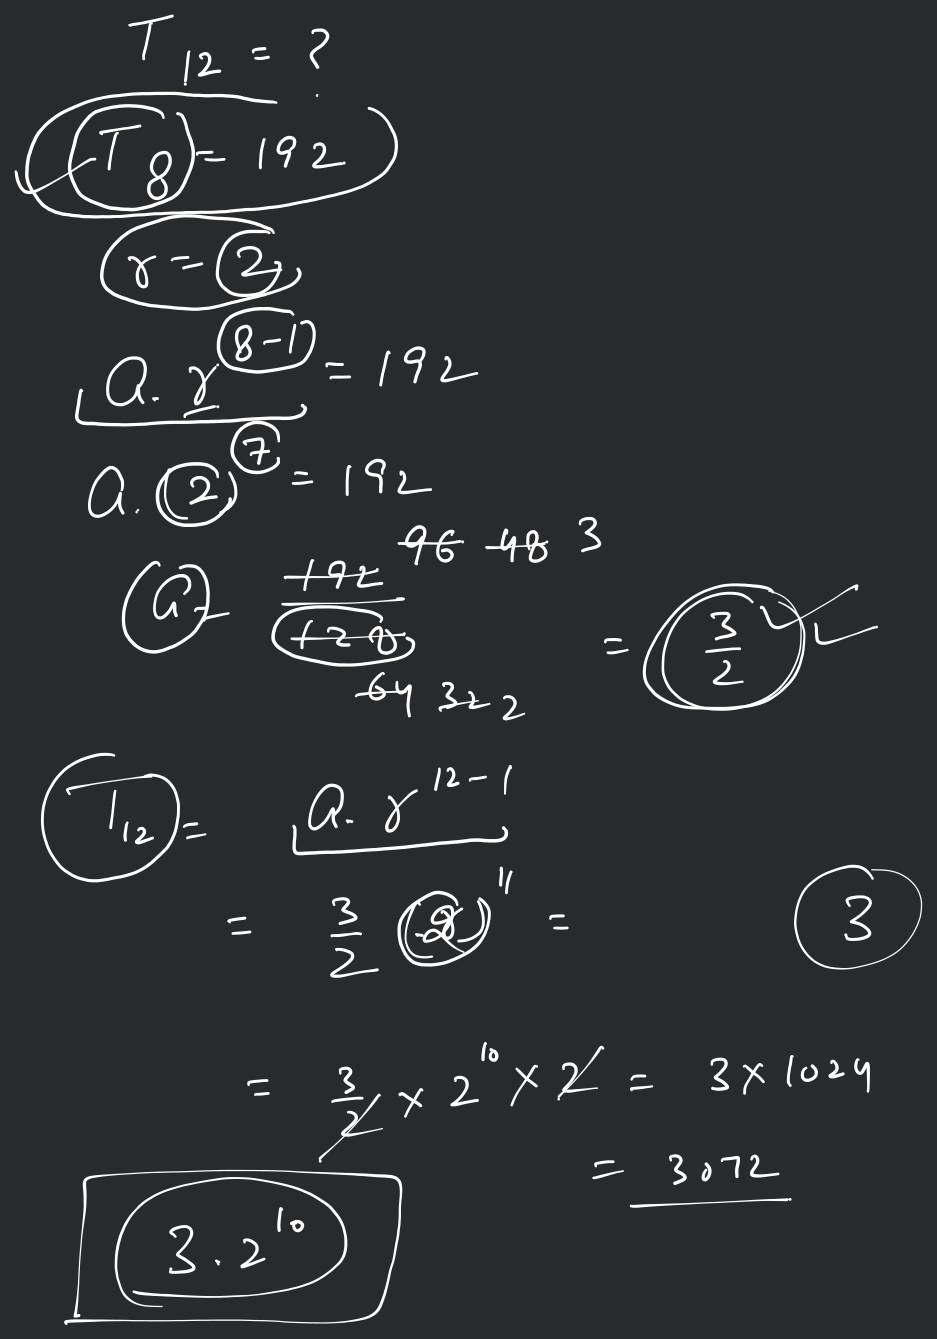 T₁₂ = ?
T₈ = 192
r = 2
a. r^(8-1) = 192
a. (2)^7 = 192
96 48 3
a = 192/128 = 3/2
64 32 2
T₁₂ = a. r^(12-1)
= 3/2 (2)^11 = 3
= 3/2 × 2^10 × 2 = 3 × 1024
= 3072
3.2^10